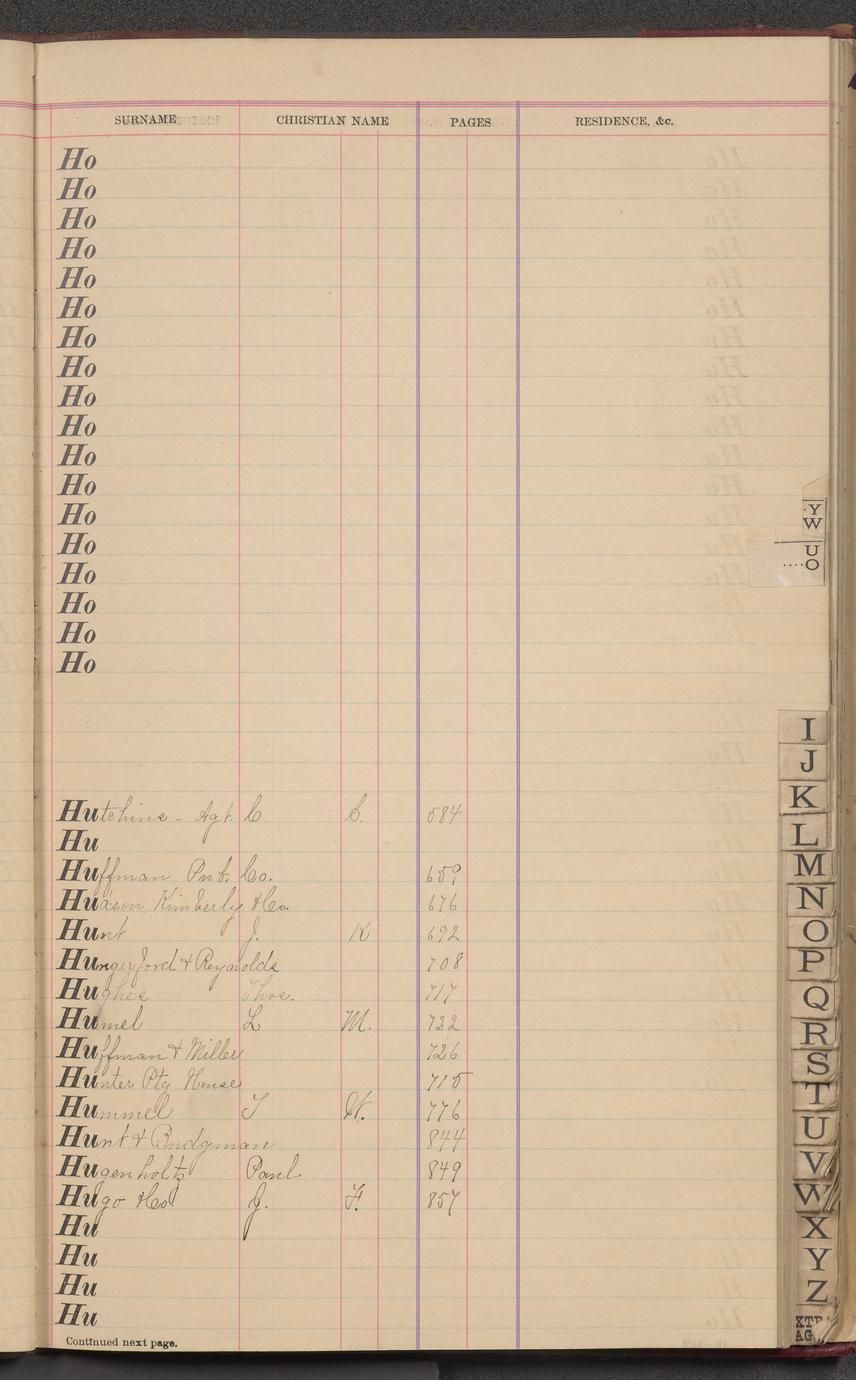 SURNAME CHRISTIAN NAME PAGES RESIDENCE, &c.
Ho
Ho
Ho
Ho
Ho
Ho
Ho
Ho
Ho
Ho
Ho
Ho
Ho
Ho
Ho
Ho
Ho
Ho
Hutchins - Agt. C B. 584
Hu
Huffman Pub. Co. 659
Hudson Kimberly &Co. 676
Hunt J. K 692
Hungerford & Reynolds 708
Hughes Thos. 717
Humel L M. 722
Huffman & Miller 726
Hunter Ptg House 715
Hummel T W. 776
Hunt & Bridgman 844
Hugenholtz Paul 849
Hugo &Co. J. F. 857
Hu
Hu
Hu
Hu
Continued next page.
Y
W
U
O
I
J
K
L
M
N
O
P
Q
R
S
T
U
V
W
X
Y
Z